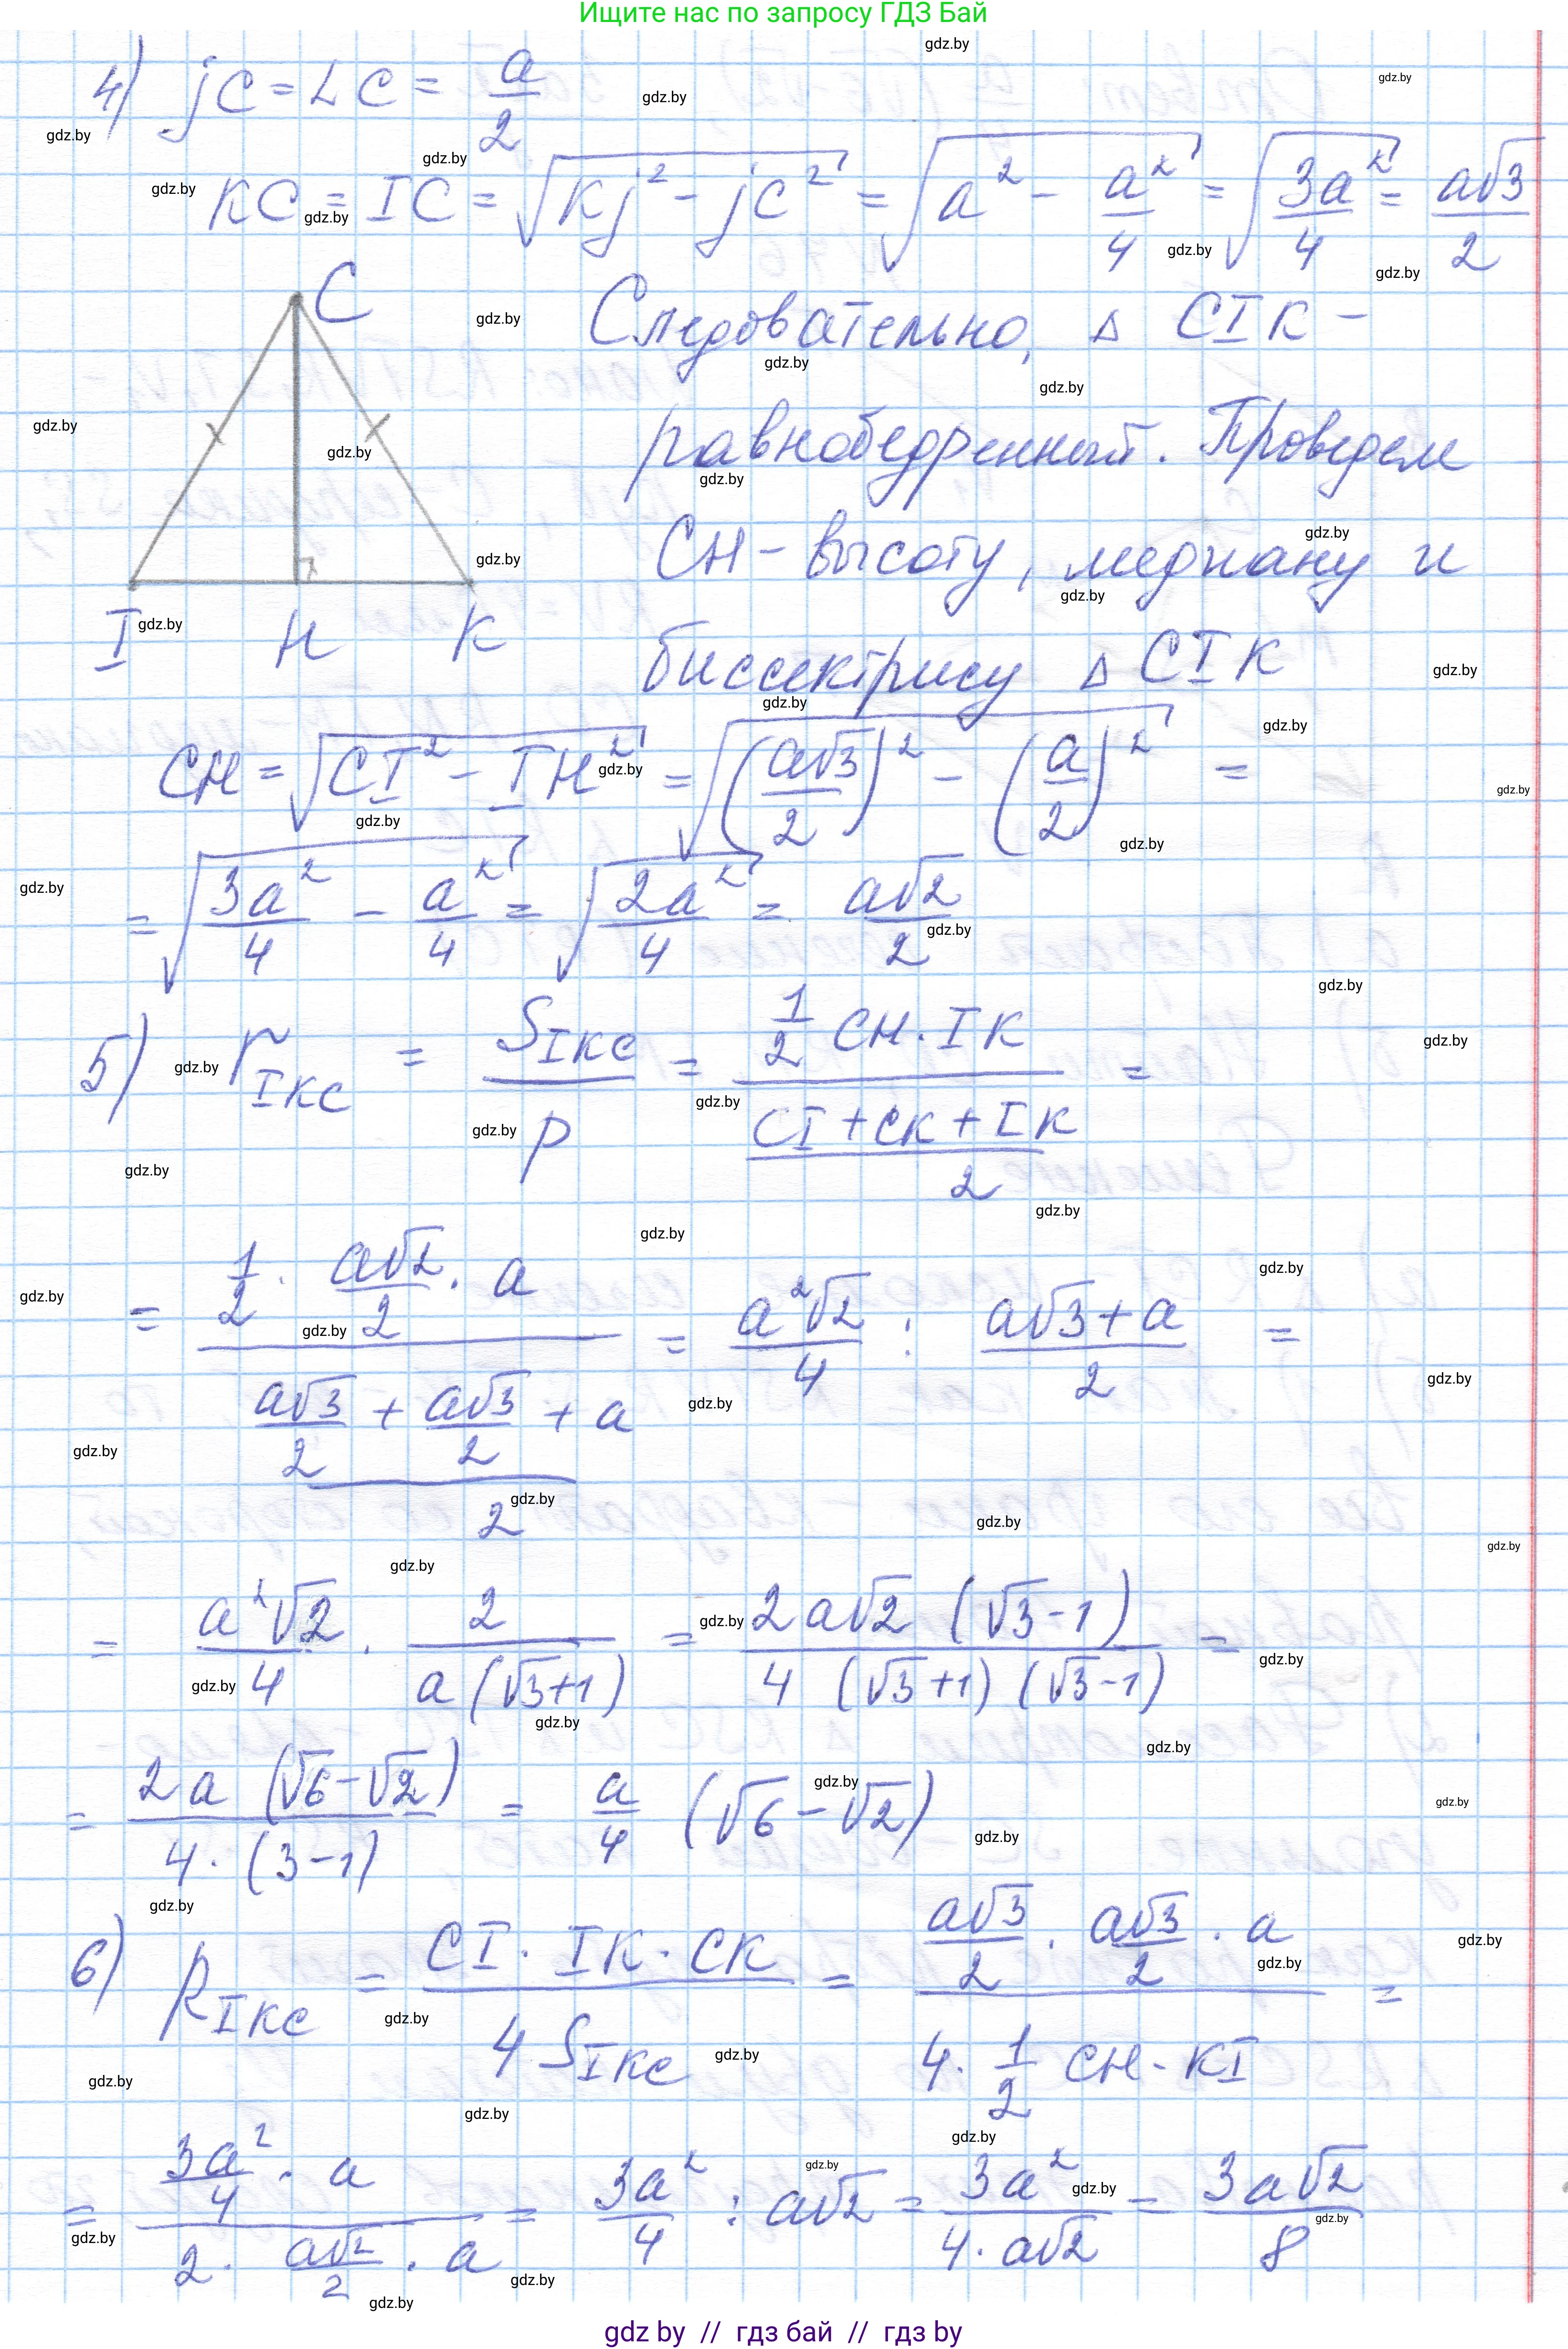 Ищите нас по запросу ГДЗ Бай
4) jC = LC = a/2
KC = IC = √(Kj² - jC²) = √(a² - a²/4) = √(3a²/4) = a√3/2
C
I H K
Следовательно, Δ CIK -
равнобедренный. Проведем
CH - высоту, медиану и
биссектрису Δ CIK
CH = √(CI² - IH²) = √((a√3/2)² - (a/2)²) =
= √(3a²/4 - a²/4) = √(2a²/4) = a√2/2
5) r_IKC = S_IKC / p = (1/2 CH · IK) / ((CI + CK + IK)/2) =
= (1/2 · a√2/2 · a) / ((a√3/2 + a√3/2 + a)/2) = a²√2/4 : (a√3 + a)/2 =
= a²√2/4 · 2/(a(√3+1)) = 2a√2 (√3-1) / (4 (√3+1) (√3-1)) =
= 2a (√6-√2) / (4 · (3-1)) = a/4 (√6-√2)
6) R_IKC = (CI · IK · CK) / (4 S_IKC) = (a√3/2 · a√3/2 · a) / (4 · 1/2 CH · KI) =
= (3a²/4 · a) / (2 · a√2/2 · a) = 3a²/4 : a√2 = 3a²/(4 · a√2) = 3a√2/8
gdz by // гдз бай // гдз by